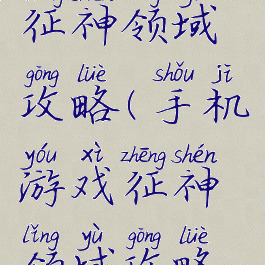 征神领域
gōng lüè shǒu jī
攻略(手机
yóu xì zhēng shén
游戏征神
lǐng yù gōng lüè
领域攻略